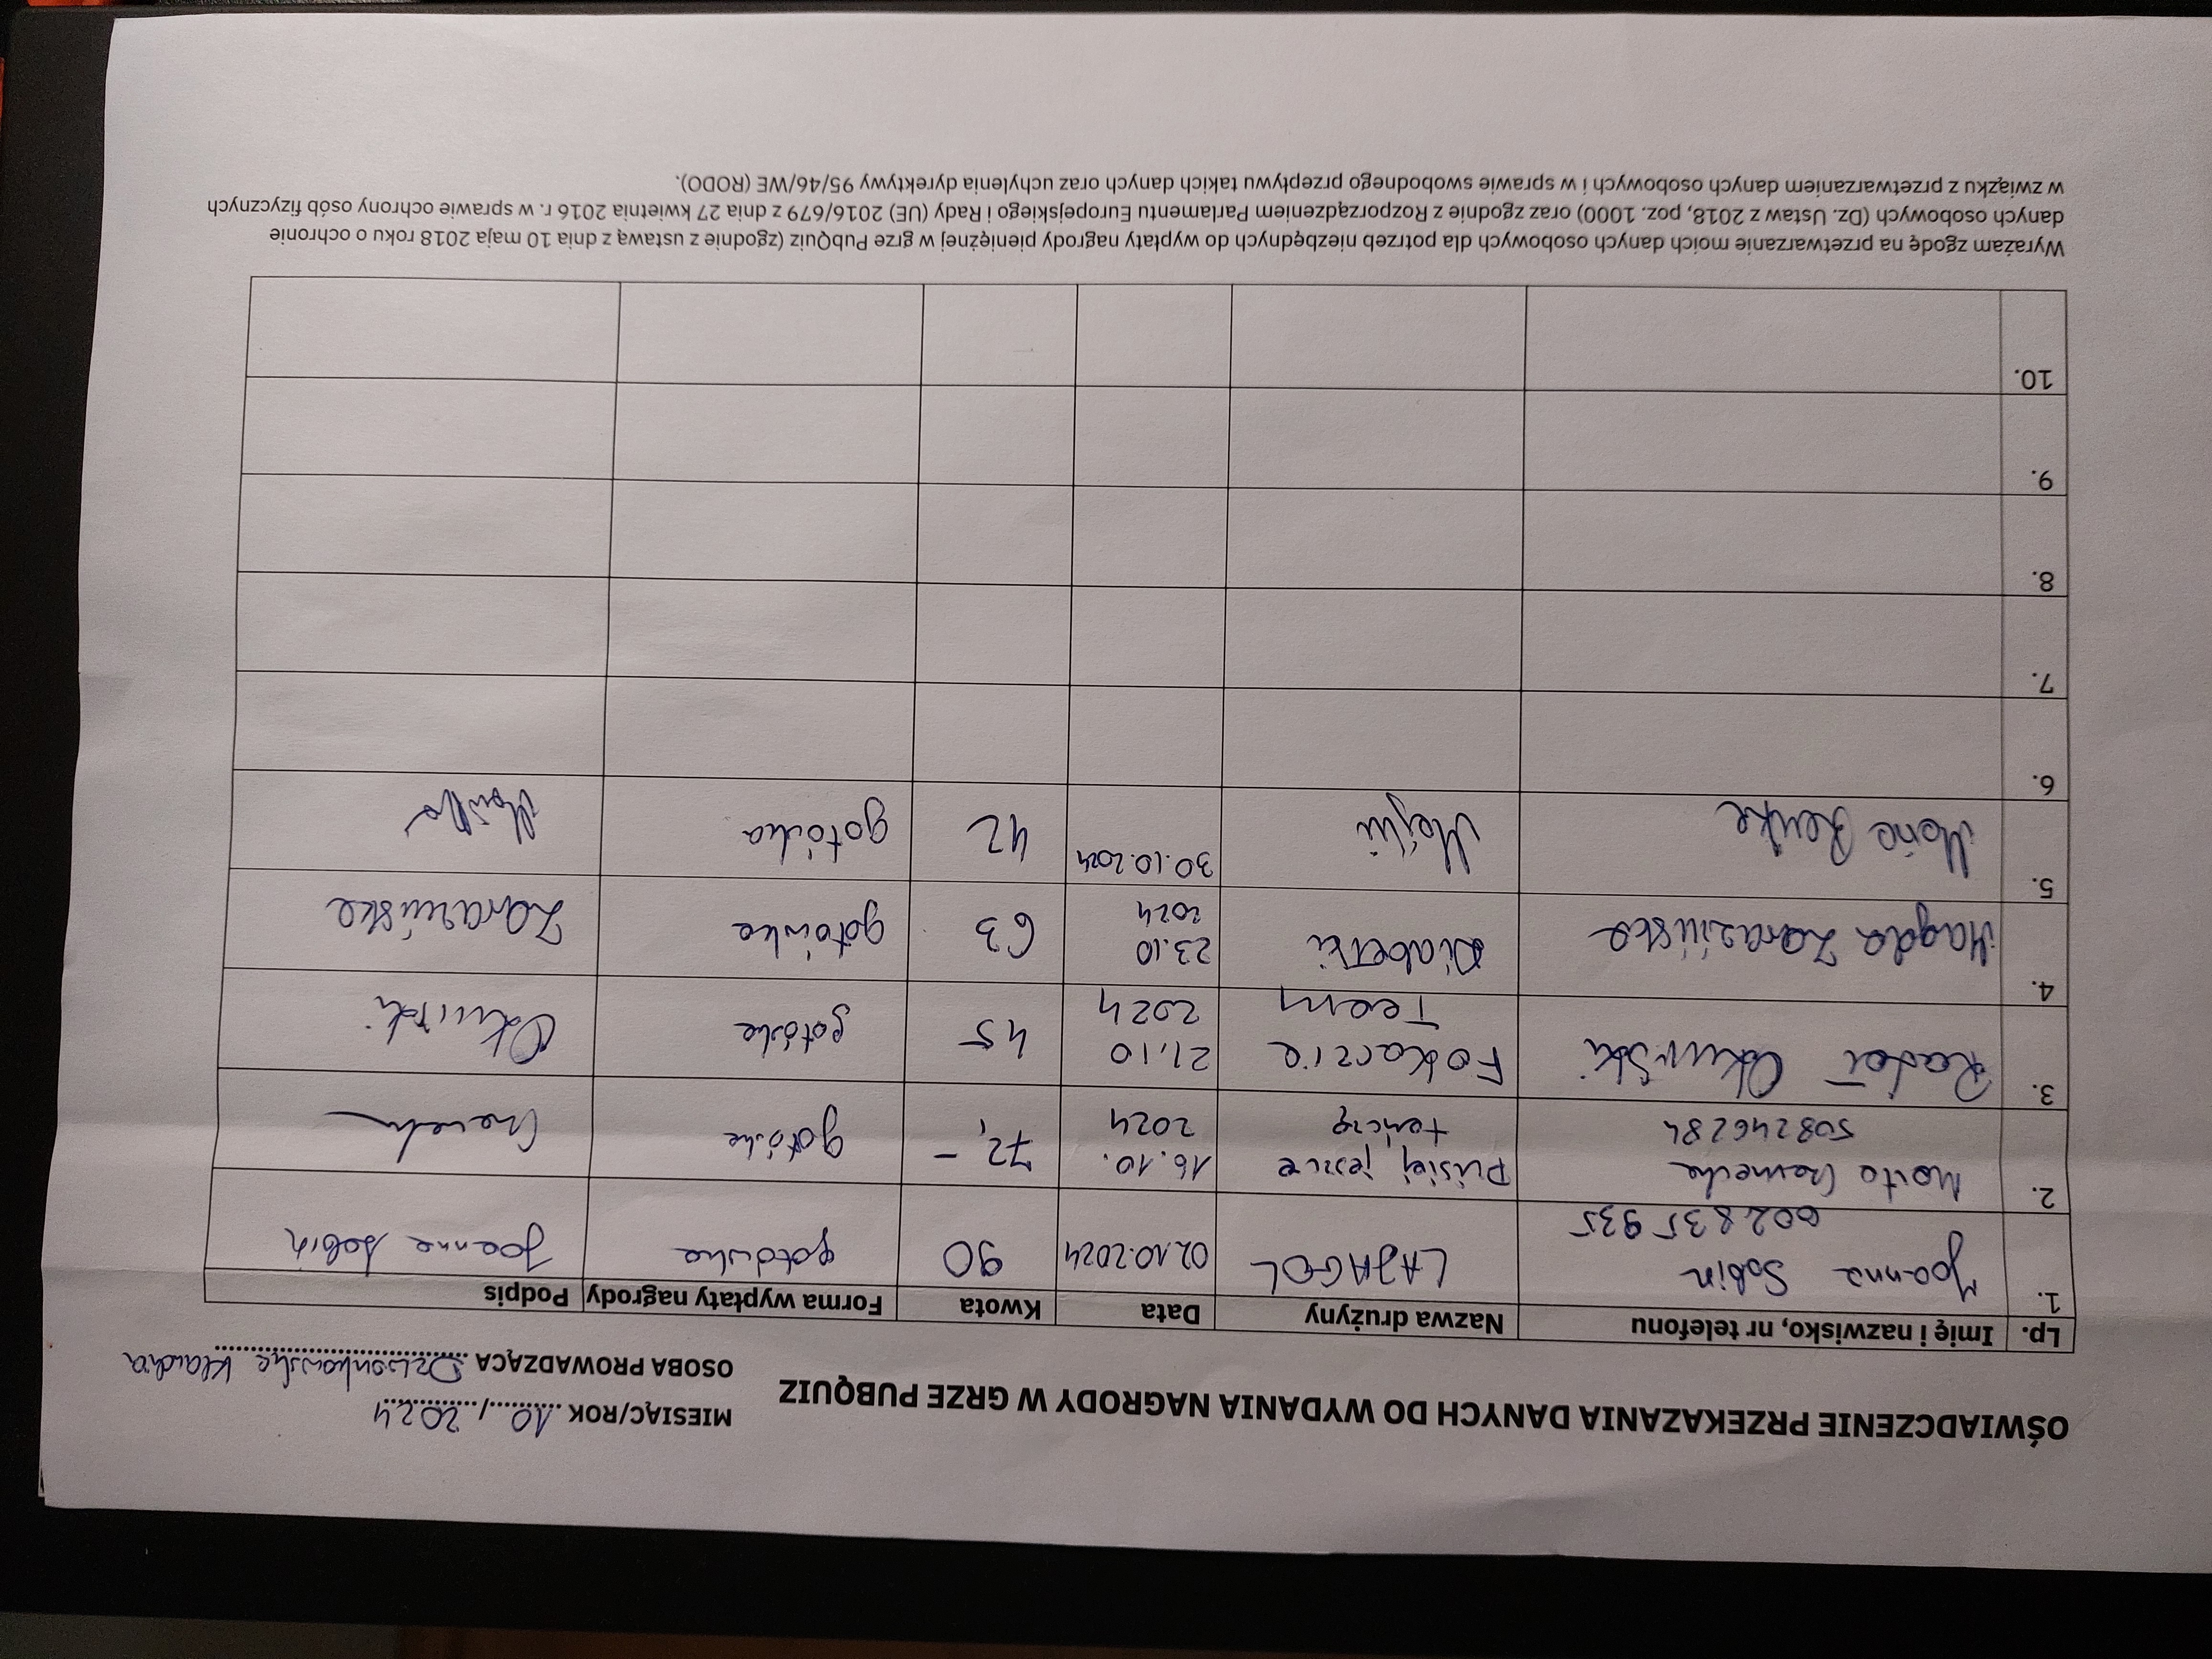 OŚWIADCZENIE PRZEKAZANIA DANYCH DO WYDANIA NAGRODY W GRZE PUBQUIZ
MIESIĄC/ROK 10 / 2024
OSOBA PROWADZĄCA Dzwonkowska Klaudia
Lp. Imię i nazwisko, nr telefonu Nazwa drużyny Data Kwota Forma wypłaty nagrody Podpis
1. Joanna Sabin LAJAGOL 02.10.2024 90 gotówka Joanna Sabin
602835935
2. Marta 16.10. 72,- gotówka
508246284 2024
jeszcze tańczę
3. 21.10 45 gotówka
Team 2024
4. Magda Zarazińska Diabełki 23.10 63 gotówka Zarazińska
2024
5. Maria 30.10.2024 42 gotówka
6.
7.
8.
9.
10.
Wyrażam zgodę na przetwarzanie moich danych osobowych dla potrzeb niezbędnych do wypłaty nagrody pieniężnej w grze PubQuiz (zgodnie z ustawą z dnia 10 maja 2018 roku o ochronie
danych osobowych (Dz. Ustaw z 2018, poz. 1000) oraz zgodnie z Rozporządzeniem Parlamentu Europejskiego i Rady (UE) 2016/679 z dnia 27 kwietnia 2016 r. w sprawie ochrony osób fizycznych
w związku z przetwarzaniem danych osobowych i w sprawie swobodnego przepływu takich danych oraz uchylenia dyrektywy 95/46/WE (RODO).